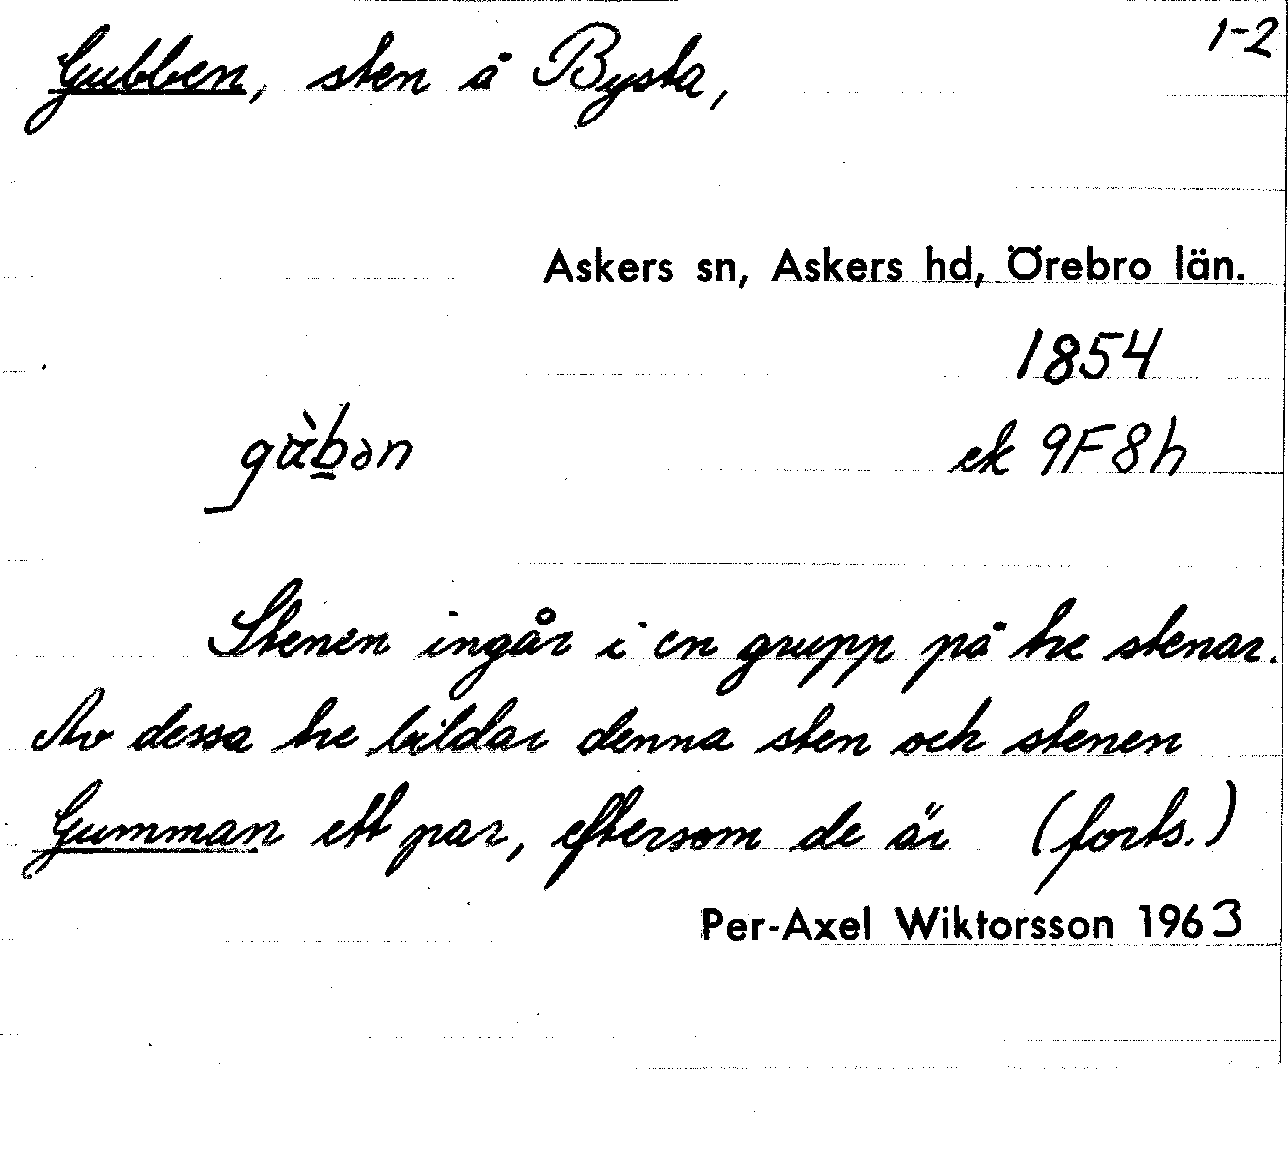 Gubben, sten å Bysta,
1-2
Askers sn, Askers hd, Örebro län.
1854
gàb̲ən
ek 9F8h
Stenen ingår i en grupp på tre stenar.
Av dessa tre bildar denna sten och stenen
Gumman ett par, eftersom de är (forts.)
Per-Axel Wiktorsson 1963